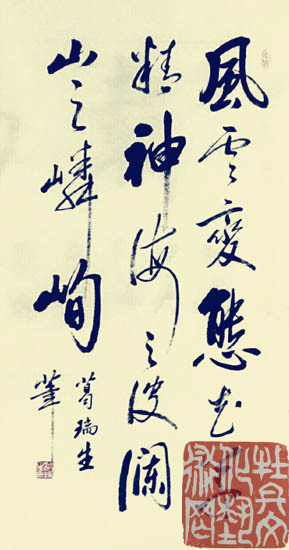 風云變態花
精神海之波瀾
山之嶙峋
葛瑞生
筆